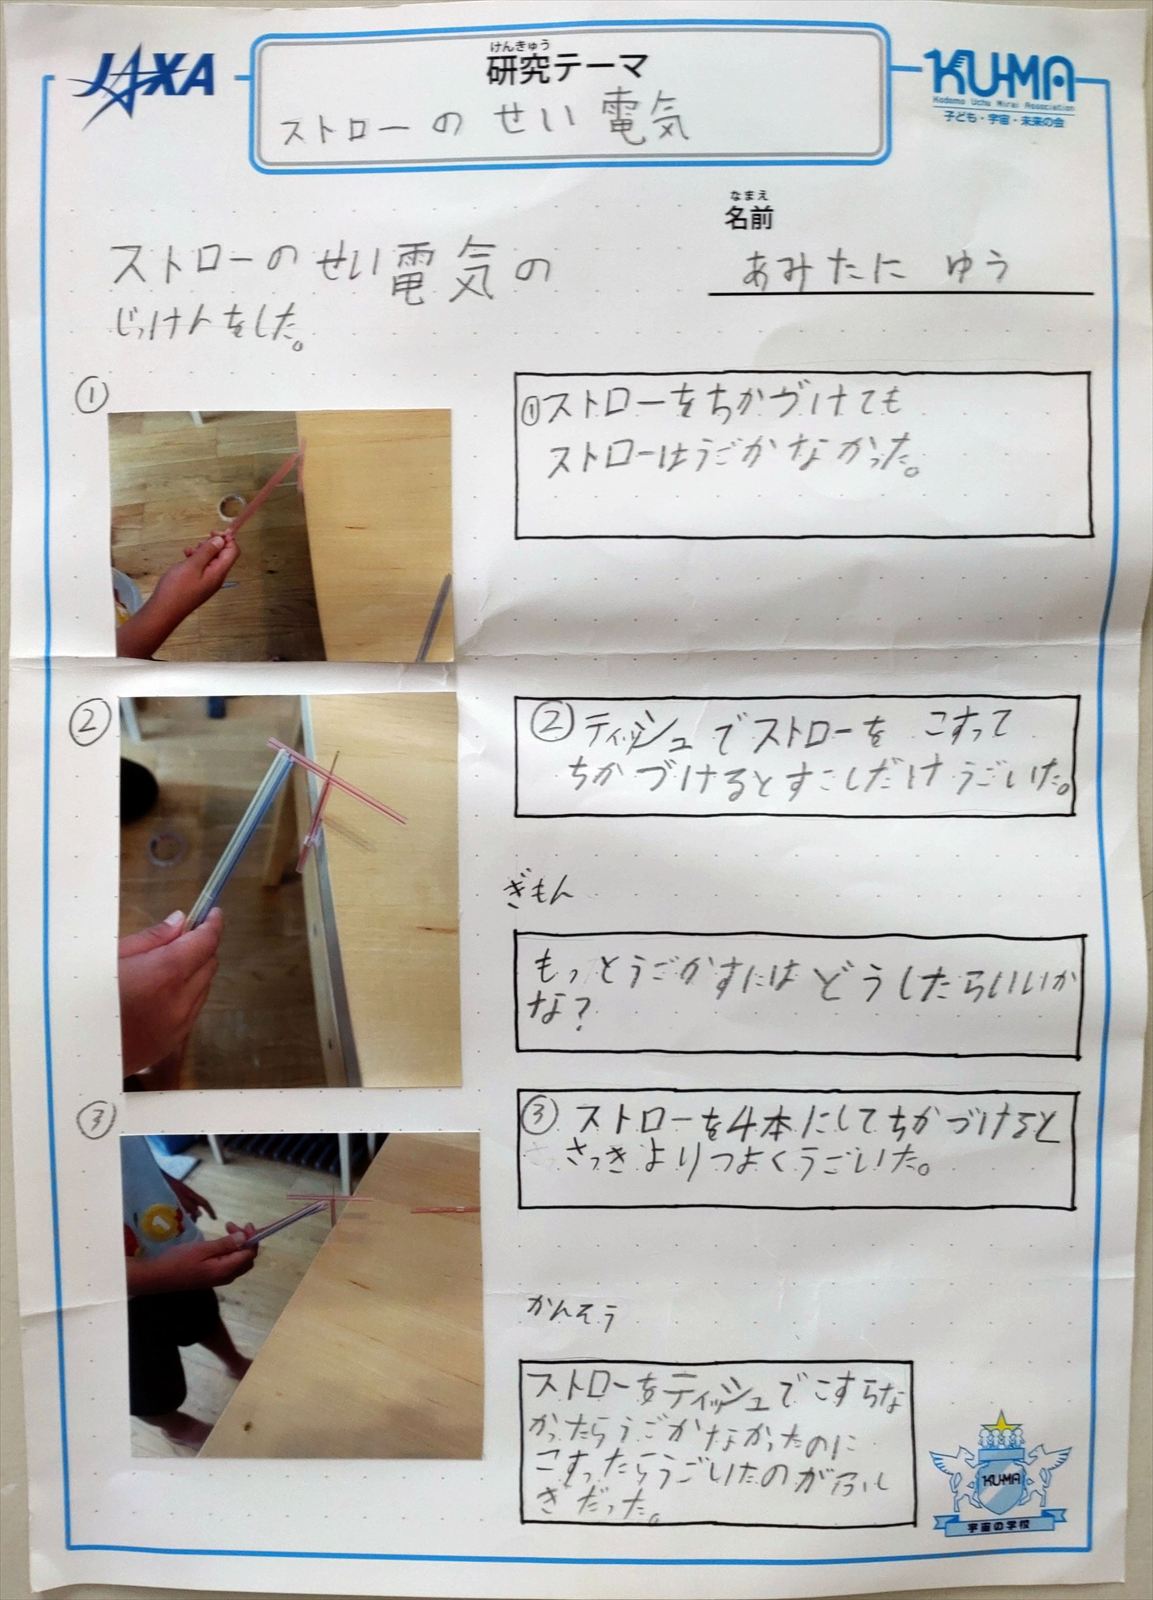 JAXA
けんきゅう
研究テーマ
ストローのせい電気
KU-MA
Kodomo Uchu Mirai Association
子ども・宇宙・未来の会
なまえ
名前
あみたに ゆう
ストローのせい電気の
じっけんをした。
①
①ストローをちかづけても
ストローはうごかなかった。
②
②ティッシュでストローを こすって
ちかづけるとすこしだけうごいた。
ぎもん
もっとうごかすにはどうしたらいいか
な?
③
③ストローを4本にしてちかづけると
さっきよりつよくうごいた。
かんそう
ストローをティッシュでこすらな
かったらうごかなかったのに
こすったらうごいたのがふし
ぎだった。
KU-MA
宇宙の学校